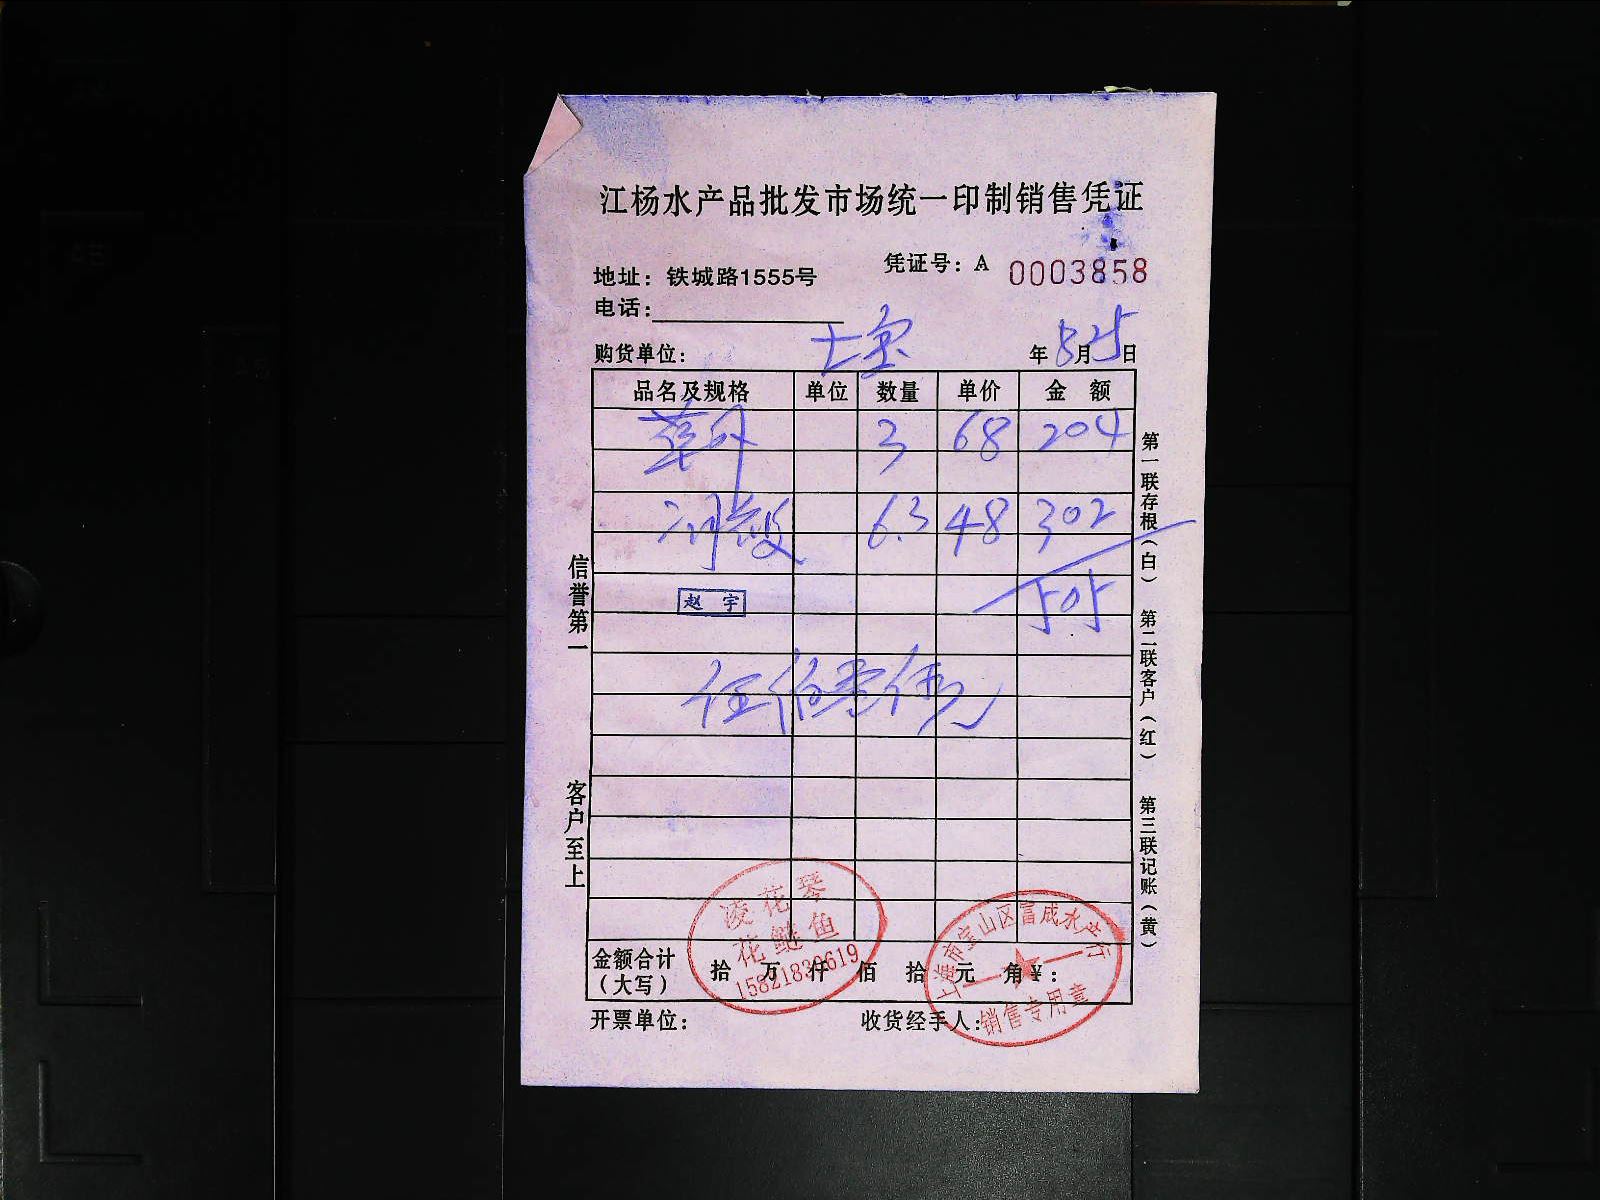 江杨水产品批发市场统一印制销售凭证
凭证号：A 0003858
地址：铁城路1555号
电话：
购货单位： 七宝 年 8月25日
品名及规格 单位 数量 单价 金 额
3 68 204
6.3 48 302
赵 宇
505
伍佰零伍元
凌花琴
花鲢鱼
15821830619
上海市宝山区富成水产行
销售专用章
金额合计（大写） 拾 万 仟 佰 拾 元 角¥：
开票单位： 收货经手人：
信誉第一 客户至上
第一联存根（白） 第二联客户（红） 第三联记账（黄）